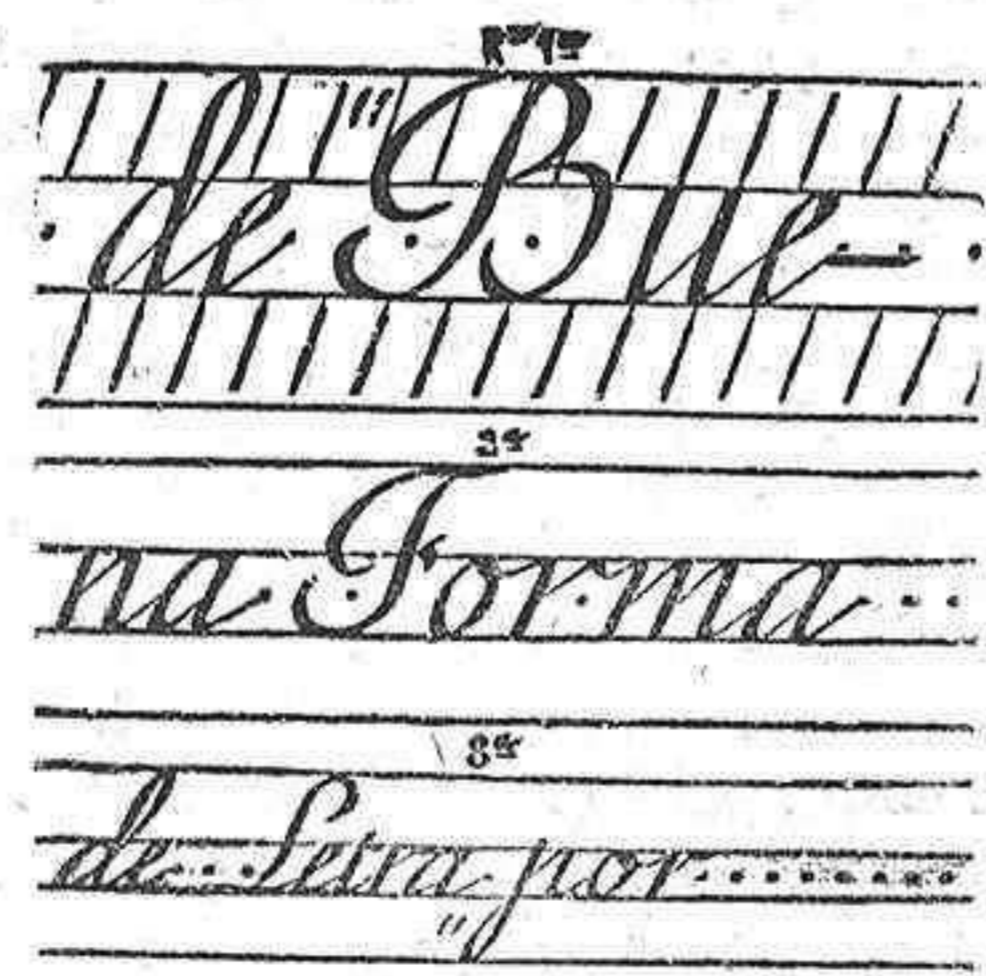 de Bue-
2ª
na Forma
3ª
de Letra por